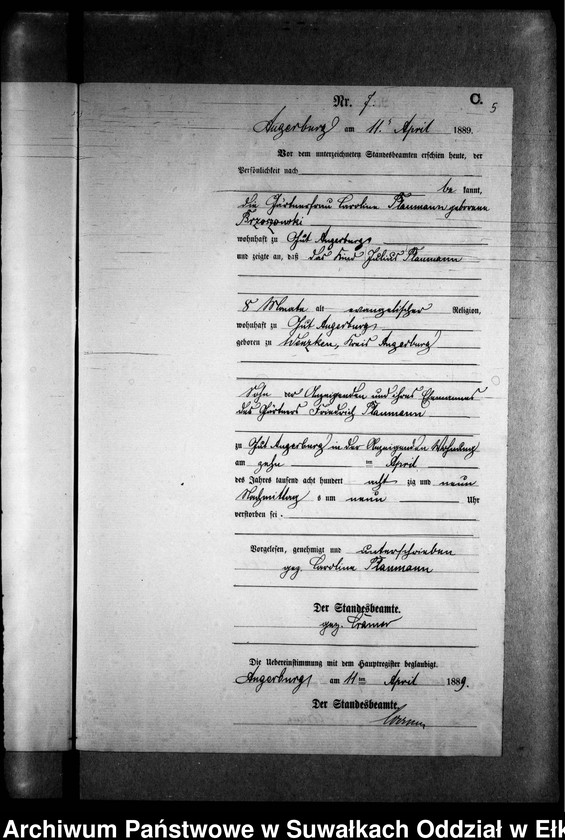 Nr. 7.
C.
5
Angerburg am 11t April 1889.
Vor dem unterzeichneten Standesbeamten erschien heute, der
Persönlichkeit nach
be kannt,
die Gärtnerfrau Caroline Plaumann geborene
Brzozowski
wohnhaft zu Gut Angerburg
und zeigte an, daß das Kind Julius Plaumann
8 Monate alt evangelischer Religion,
wohnhaft zu Gut Angerburg
geboren zu Wenzken, Kreis Angerburg
Sohn der Anzeigenden und ihres Ehemannes
des Gärtners Friedrich Plaumann
zu Gut Angerburg in der Anzeigenden Wohnung
am zehn ten April
des Jahres tausend acht hundert acht zig und neun
Nachmittag s um neun Uhr
verstorben sei.
Vorgelesen, genehmigt und unterschrieben
gez. Caroline Plaumann
Der Standesbeamte.
gez. Krämer
Die Uebereinstimmung mit dem Hauptregister beglaubigt.
Angerburg am 11ten April 1889.
Der Standesbeamte.
Archiwum Państwowe w Suwałkach Oddział w Ełk